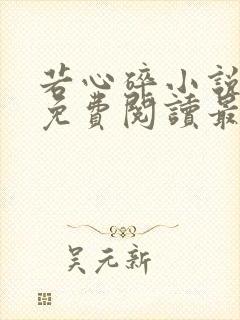 若心碎小說
免費閱讀最
吴元新